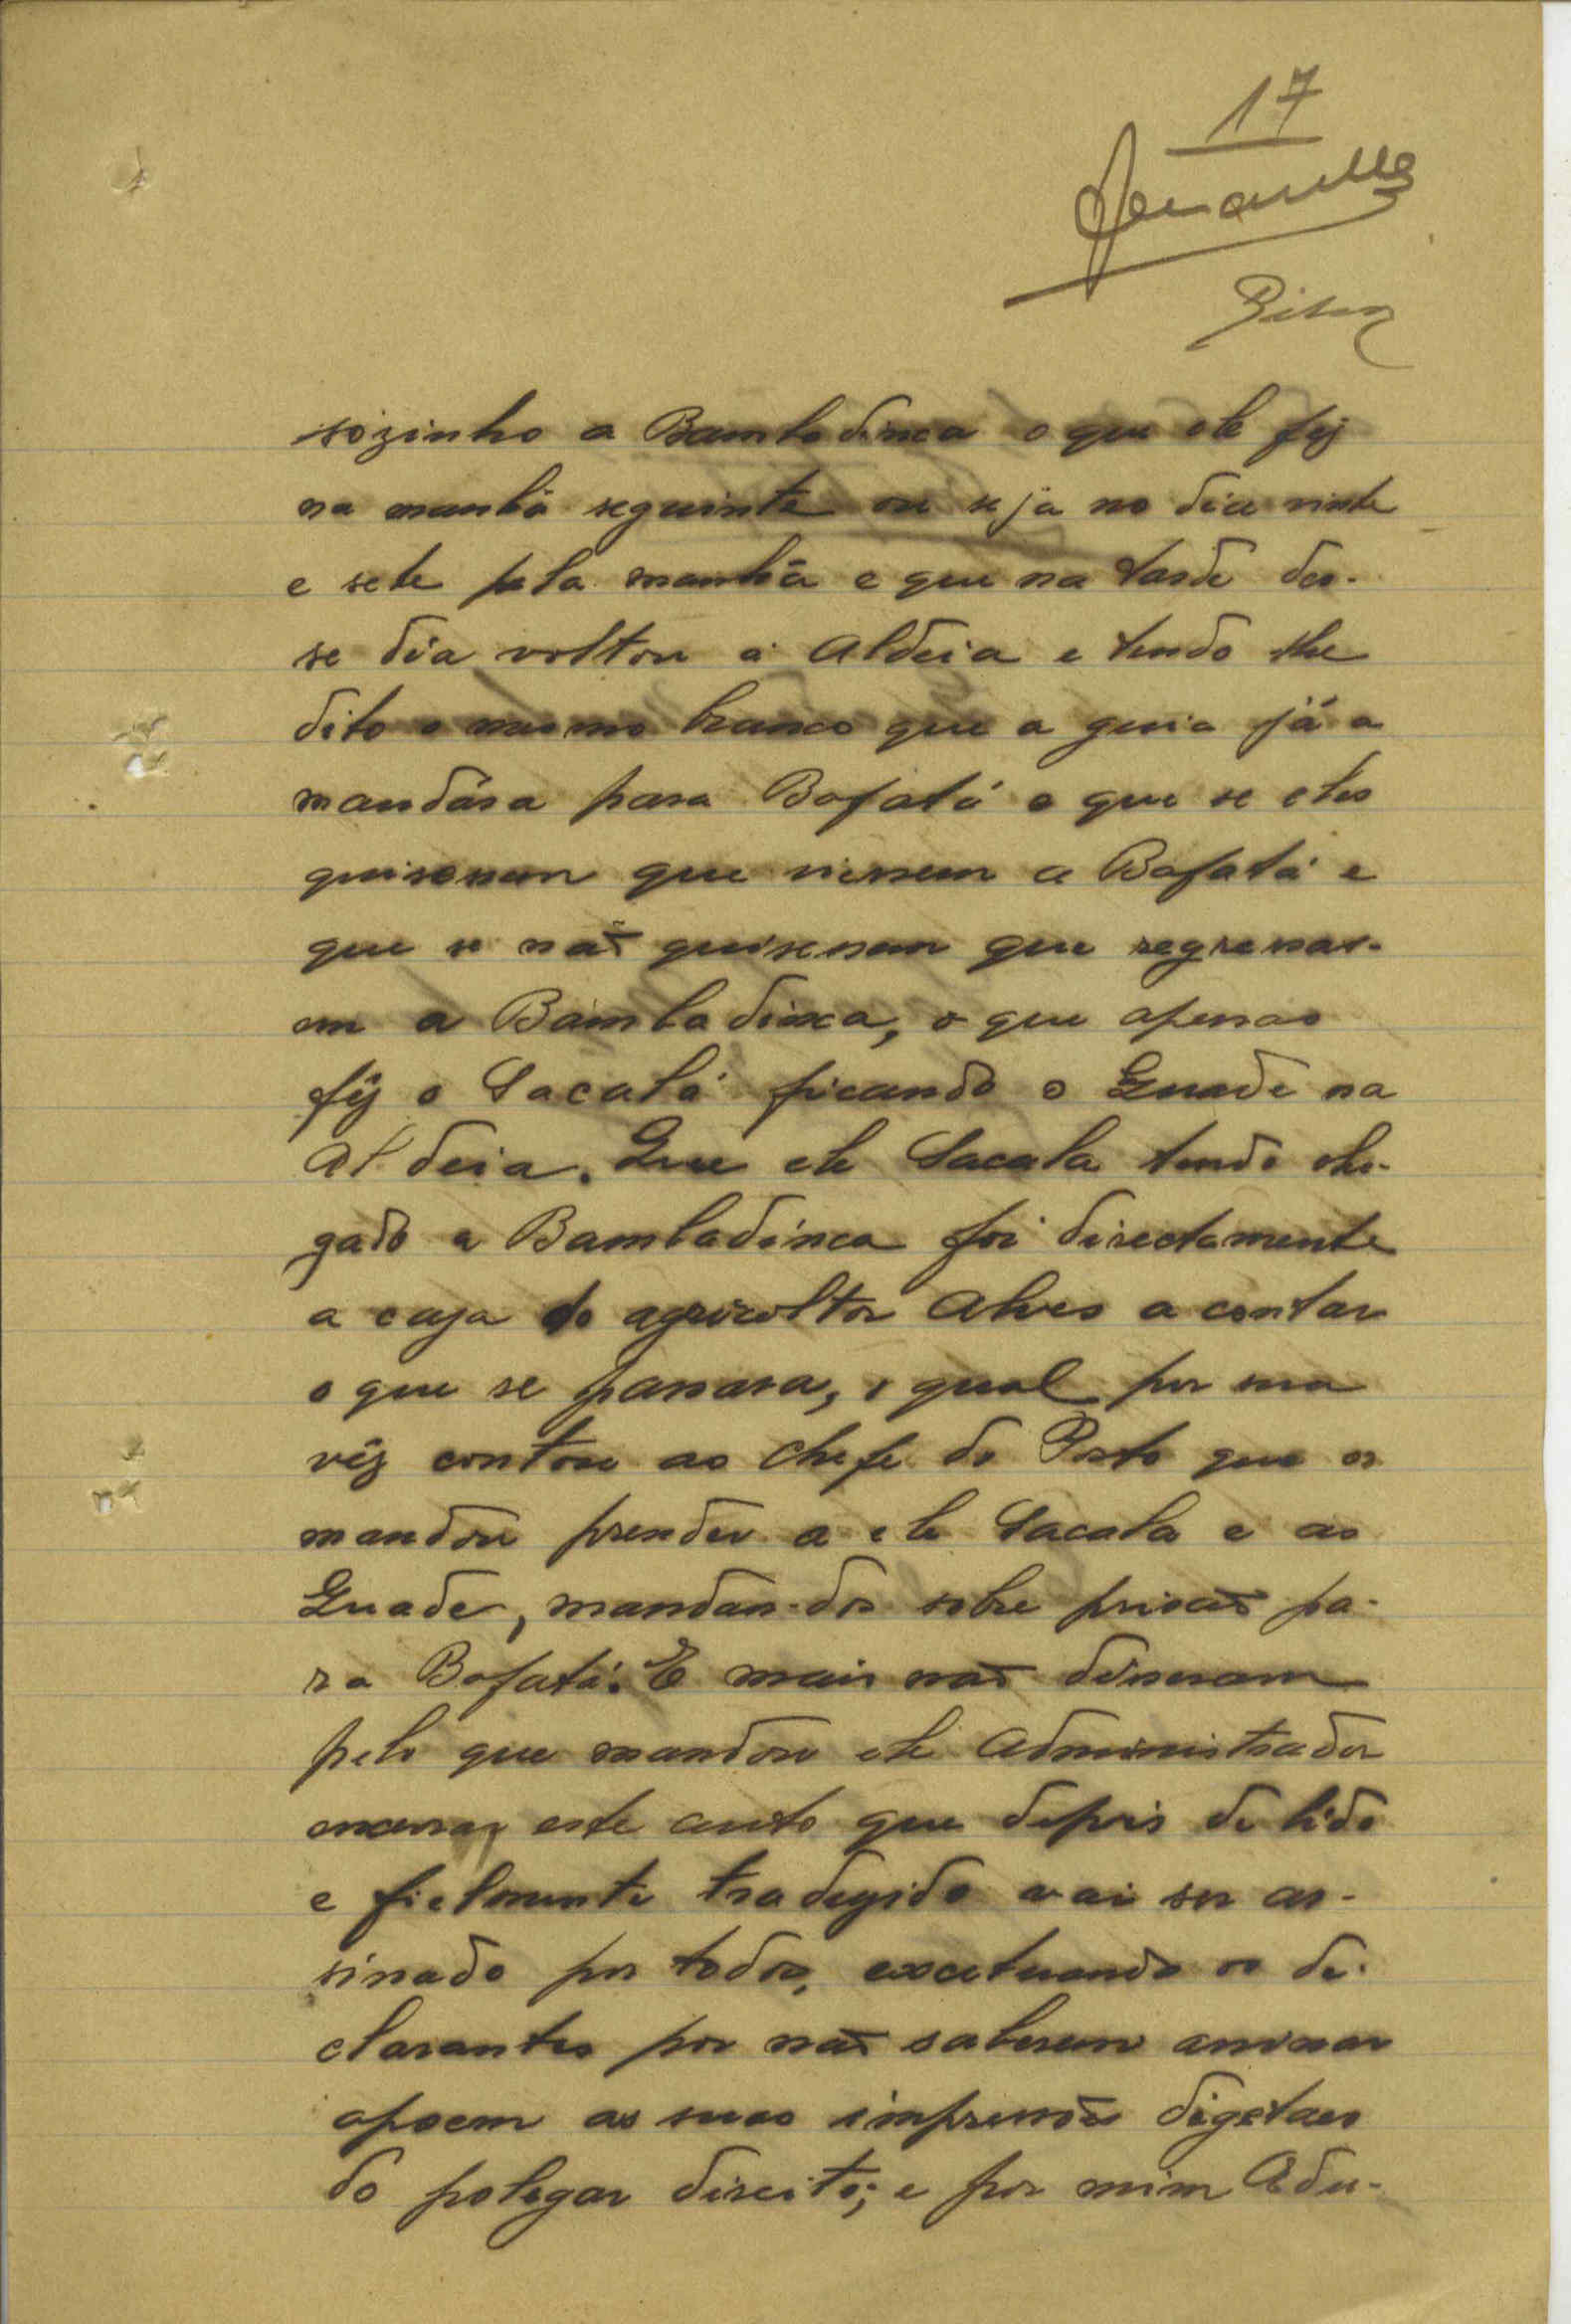 17
sozinho a Bambadinca o que ele fez
na manhã seguinte ou seja no dia vinte
e sete pela manhã e que na tarde des-
se dia voltou á Aldeia e tendo lhe
dito o mesmo branco que a guia já a
mandára para Bafatá e que se eles
quisessem que viessem a Bafatá e
que se não quisessem que regressas-
em a Bambadinca, o que apenas
fêz o Sacalá ficando o Guade na
Aldeia. Que ele Sacala tendo che-
gado a Bambadinca foi directamente
a caza do agricoltor Alves a contar
o que se passara, o qual por sua
vêz contou ao chefe do Posto que os
mandou prender a ele Sacala e ao
Guade, mandan-dos sobre prisão pa-
ra Bafatá. E mais não disseram
pelo que mandou ele Administrador
encerrar este auto que depois de lido
e fielmente traduzido vai ser as-
sinado por todos, excetuando os de-
clarantes por não saberem assinar
apoem as suas impressões digetaes
do polegar direito; e por mim Adu-